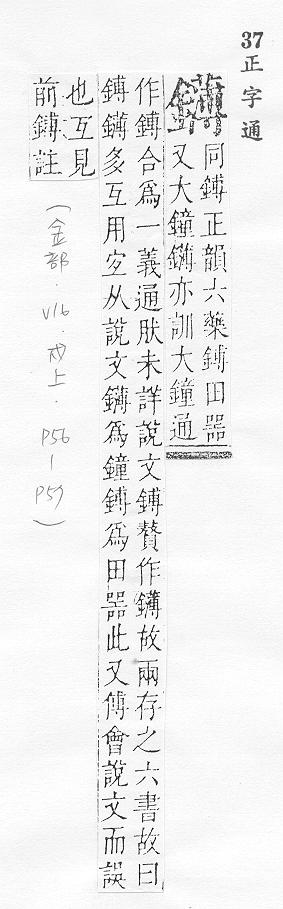 37正字通
鑮
同鎛正韻六藥鎛田器
又大鐘鑮亦訓大鐘通
作鎛合為一義通肰未詳說文鎛贅作鑮故兩存之六書故曰
鎛鑮多互用㝎从說文鑮為鐘鎛為田器此又傅會說文而誤
也互見
前鎛註
(金部.V16.戌上.P56-P57)